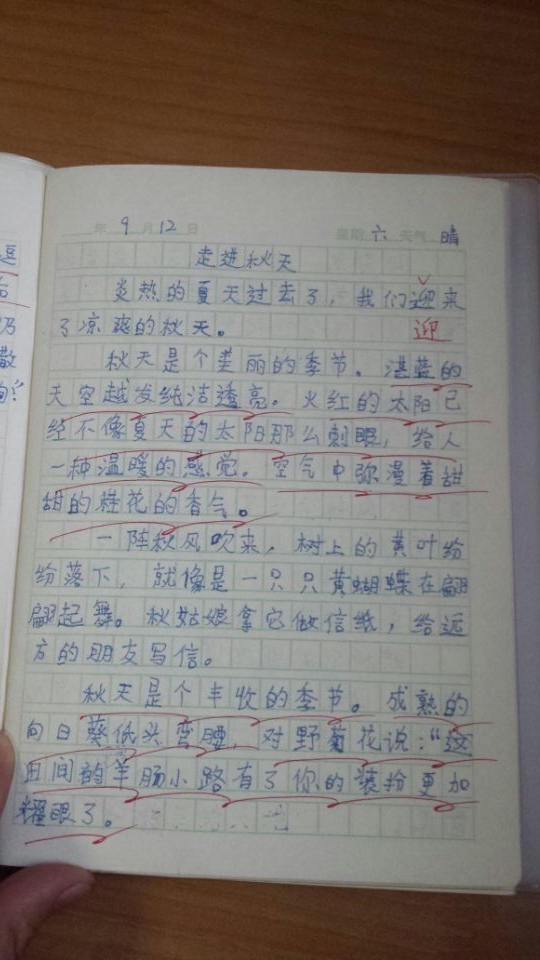 逗
台
乃
散
年 9 月 12 日 星期 六 天气 晴
走进秋天
炎热的夏天过去了，我们迎来
了凉爽的秋天。 迎
秋天是个美丽的季节。湛蓝的
天空越发纯洁透亮。火红的太阳已
经不像夏天的太阳那么刺眼，给人
一种温暖的感觉。空气中弥漫着甜
甜的桂花的香气。
一阵秋风吹来，树上的黄叶纷
纷落下，就像是一只只黄蝴蝶在翩
翩起舞。秋姑娘拿它做信纸，给远
方的朋友写信。
秋天是个丰收的季节。成熟的
向日葵低头弯腰，对野菊花说：“这
田间的羊肠小路有了你的装扮更加
耀眼了。